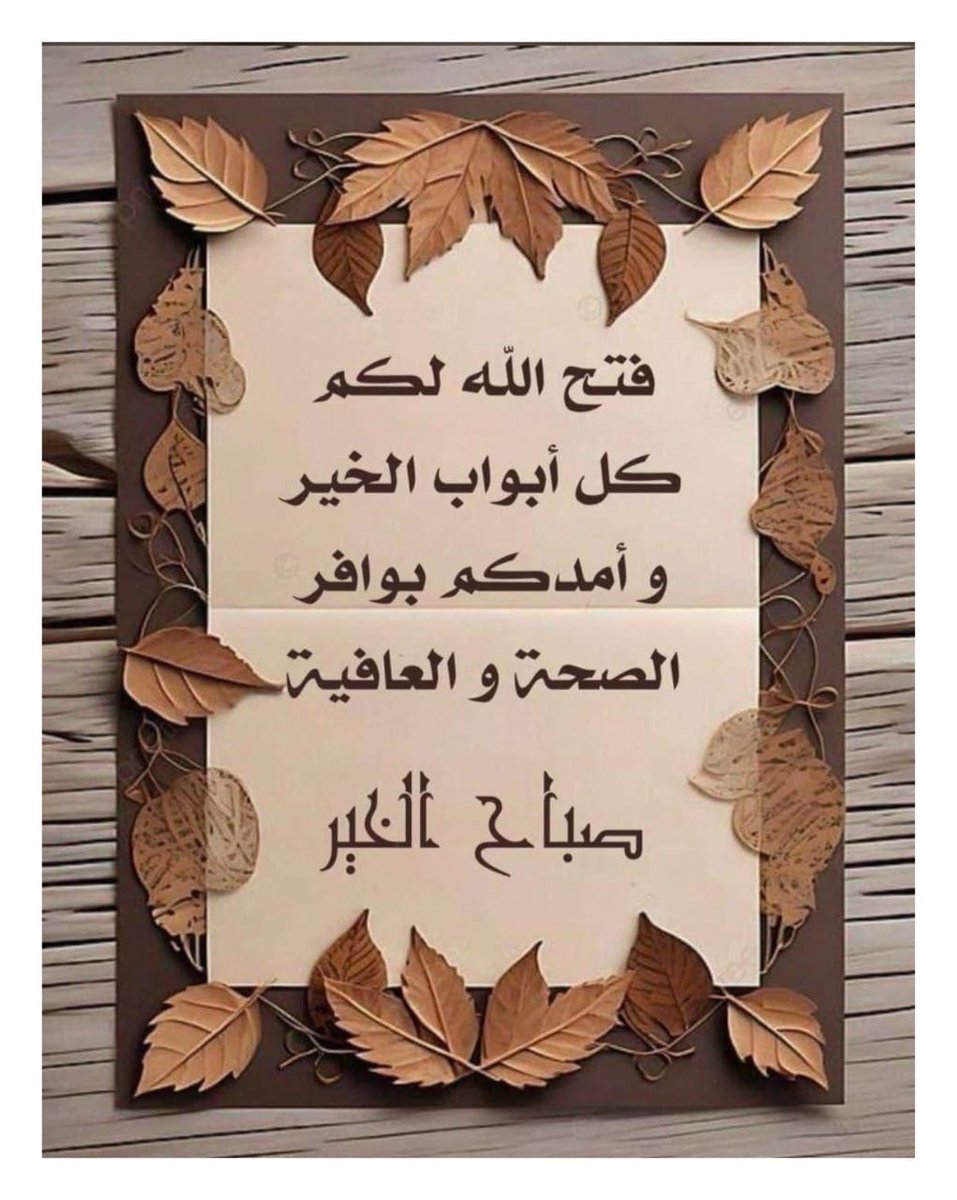 فتح الله لكم
كل أبواب الخير
و أمدكم بوافر
الصحة و العافية
صباح الخير